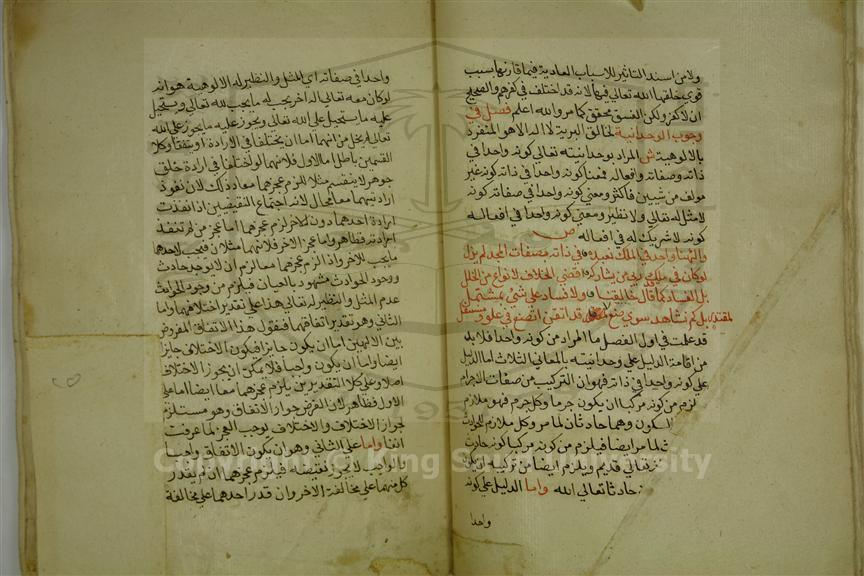 ولا من اسند التاثير للاسباب العادية فيما قارنها بسبب
قوي خلقها الله تعالى فيها لانه قد اختلف في كفرهم والصحيح
ان لا كفر ولكن الفسق محقق كما مر والله اعلم فصل في
وجوب الوحدانية لخالق البرية لا اله الا هو المنفرد
بالالوهية ش المراد بوحدانيته تعالى كونه واحدا في
ذاته وصفاته وافعاله فمعنا كونه واحدا في ذاته كونه غير
مولف من شيين فاكثر ومعني كونه واحدا في صفاته كونه
لا مثل له تعالى ولا نظير ومعني كونه واحدا في افعاله
كونه لا شريك له في افعاله ص
والهنا واحد في الملك في ذاته وصفات المجد لم يزل
لو كان في ملك ربي من يشاركه اقضي الخلاف لانواع من الخلل
بل الفساد كما قال خالقنا ولا فساد علي شئ بمشتمل
بل كم نشاهد سوي صنع لمقتدر قد اتقن الصنع في علو ومستفل
قد علمت في اول الفصل ما المراد من كونه واحدا فلا بد
من اقامة الدليل علي وحدانيته بالمعاني الثلاث اما الدليل
علي كونه واحدا في ذاته فهو ان التركيب من صفات الاجرام
لزم من كونه مركبا ان يكون جرما وكل جرم فهو ملازم
السكون وهما حادثان لما مر وكل ملازم للحوادث
لما مر ايضا فيلزم من كونه مركبا كونه حادث
تعالى قديم ويلزم ايضا من تركيبه ان يكون
حادثا تعالى الله واما الدليل علي كونه
واحدا
واحدا في صفاته اي المثل والنظير له الالوهية هو انه
لو كان معه تعالى اله اخر يجب له ما يجب لله تعالى ويستحيل
عليه ما يستحيل علي الله تعالى ويجوز عليه ما يجوز علي الله
تعالى لم يخل من انهما اما ان يختلفا في الارادة او يتفقا وكلا
القسمين باطل اما الاول فلانهما لو اختلفا في ارادة خلق
جوهر لا ينقسم مثلا للزم عجزهما معا وذلك لان نفوذ
ارادتيهما معا محال لانه اجتماع النقيضين اذا نفذت
ارادة احدهما دون الاخر لزم عجزهما اما عجز من لم تنفذ
ارادته فظاهر واما عجز الاخر فلانهما مثلان فيجب لاحدهما
ما يجب للاخر واذا لزم عجزهما معا لزم ان لا يوجد حادث
ووجود الحوادث مشهود بالعيان فيلزم من وجود الحوادث
عدم المثل والنظير له تعالى هذا علي تقدير اختلافهما واما
الثاني وهو تقدير اتفاقهما فنقول هذا الاتفاق المفروض
بين الالهين اما ان يكون جايزا فيكون الاختلاف جايز
ايضا واما ان يكون واجبا فلا يمكن ان يجوز الاختلاف
اصلا وعلي كلا التقديرين يلزم عجزهما معا ايضا اما علي
الاول فظاهر لان الفرض جواز الاتفاق وهو مستلزم
لجواز الاختلاف والاختلاف يوجب العجز لما عرفت
انفا واما علي الثاني وهو ان يكون الاتفاق واجبا
والواجب لا يجوز نقيضه فيلزم عجزهما اذ لم يقدر
كل منهما علي مخالفة الاخر وان قدر احدهما علي مخالفة
Copyright © King Saud University
1957